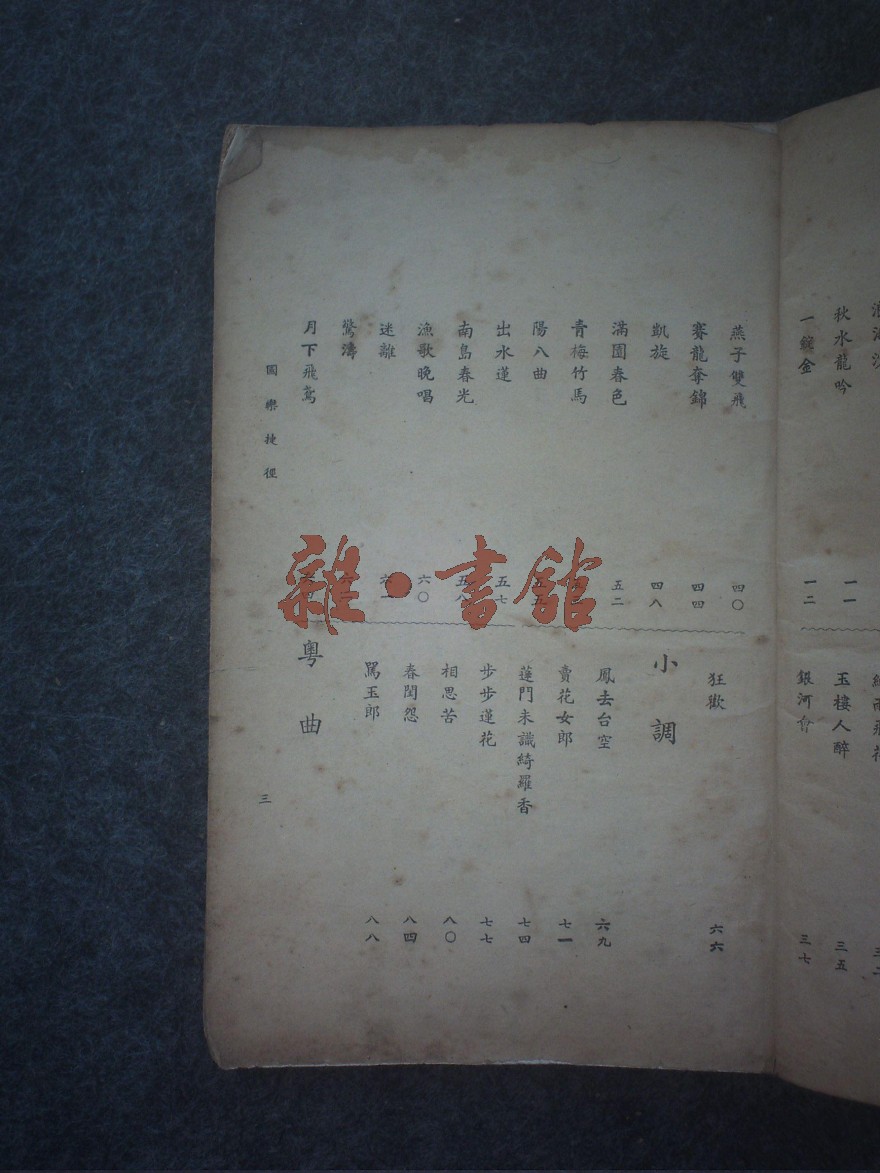 秋水龍吟
一一
一錠金
一二
玉樓人醉
三五
銀河會
三七
燕子雙飛
四〇
賽龍奪錦
四四
凱旋
四八
滿園春色
五二
青梅竹馬
陽八曲
五五
出水蓮
五七
南島春光
五八
漁歌晚唱
六〇
迷離
驚濤
月下飛鳶
狂歡
六六
小調
鳳去台空
六九
賣花女郎
七一
蓬門未識綺羅香
七四
步步蓮花
七七
相思苦
八〇
春閨怨
八四
罵玉郎
八八
粵曲
國樂捷徑
三
雜·書館